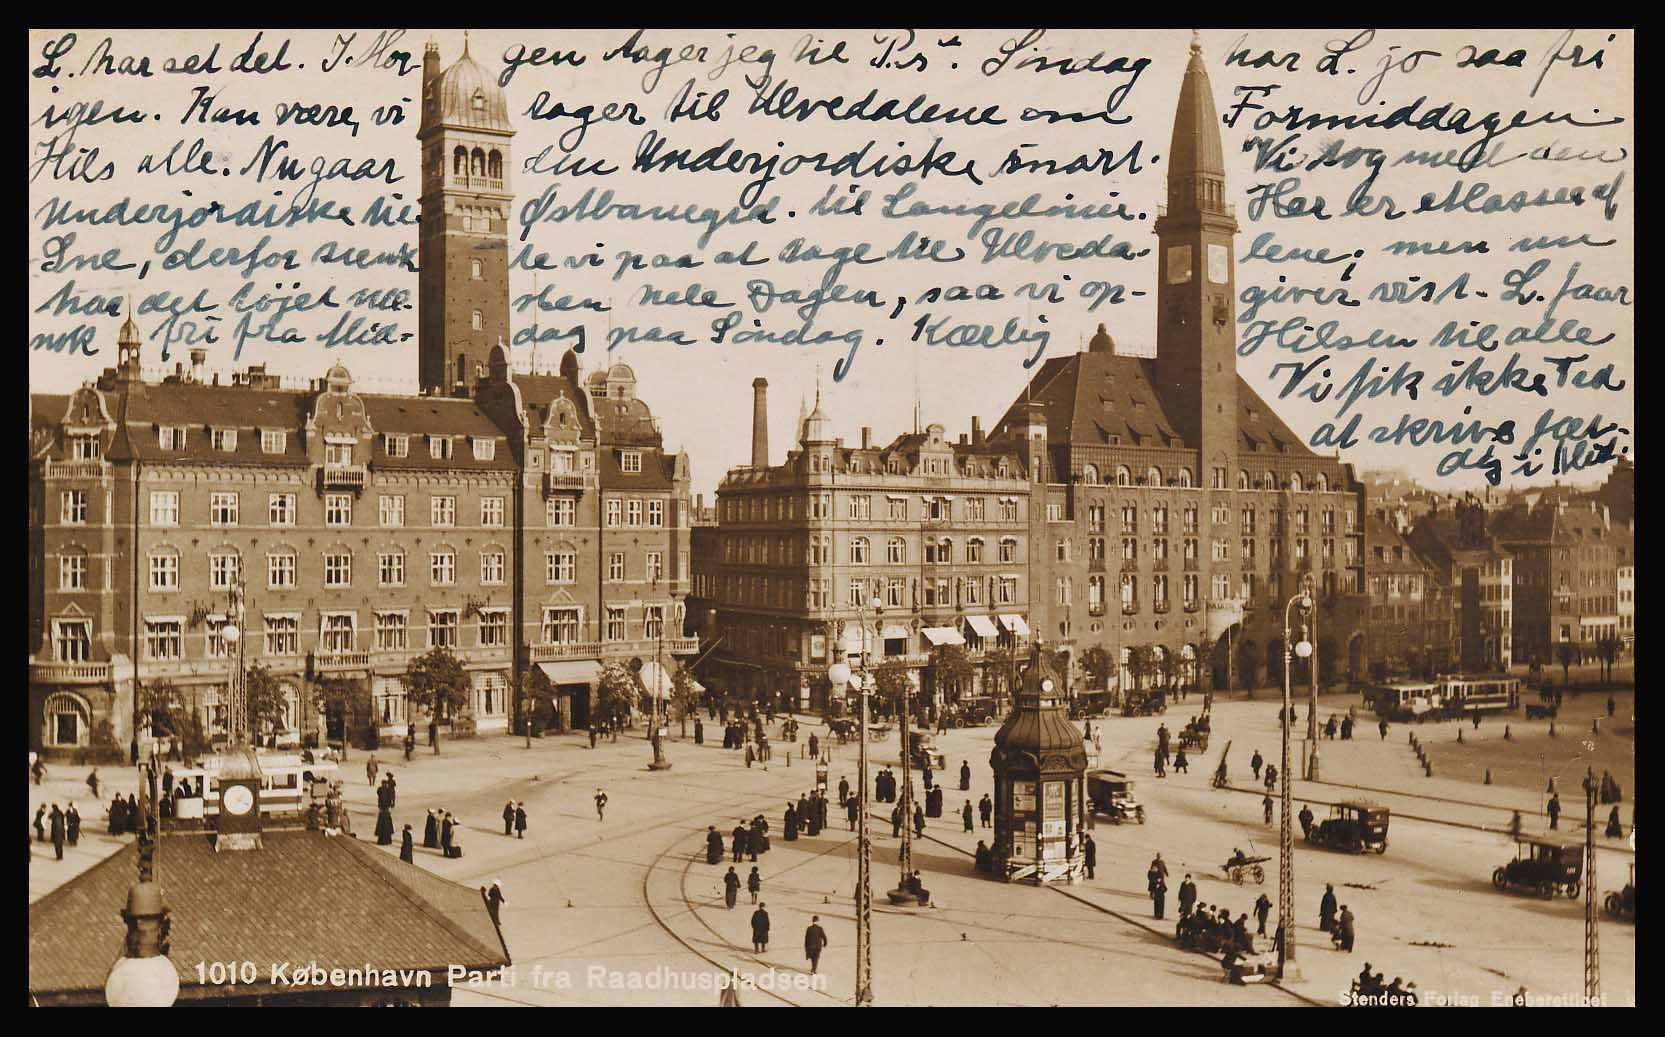 L. har set det. I Mor- gen tager jeg til P.s. Søndag har L. jo saa fri
igen. Kan være, vi tager til Ulvedalene om Formiddagen.
Hils alle. Nu gaar den Underjordiske snart. Vi tog med den
Underjordiske til Østbanegrd. til Langelinie. Her er Masser af
Sne, derfor tænk te vi paa at tage til Ulveda- lene; men nu
har det tøjet hele Dagen, saa vi op- giver vist. L. faar
nok fri fra Mid- dag paa Søndag. Kærlig Hilsen til alle
Vi fik ikke Tid
at skrive fær-
dig i Mid.
1010 København Parti fra Raadhuspladsen
Stenders Forlag Eneberettiget